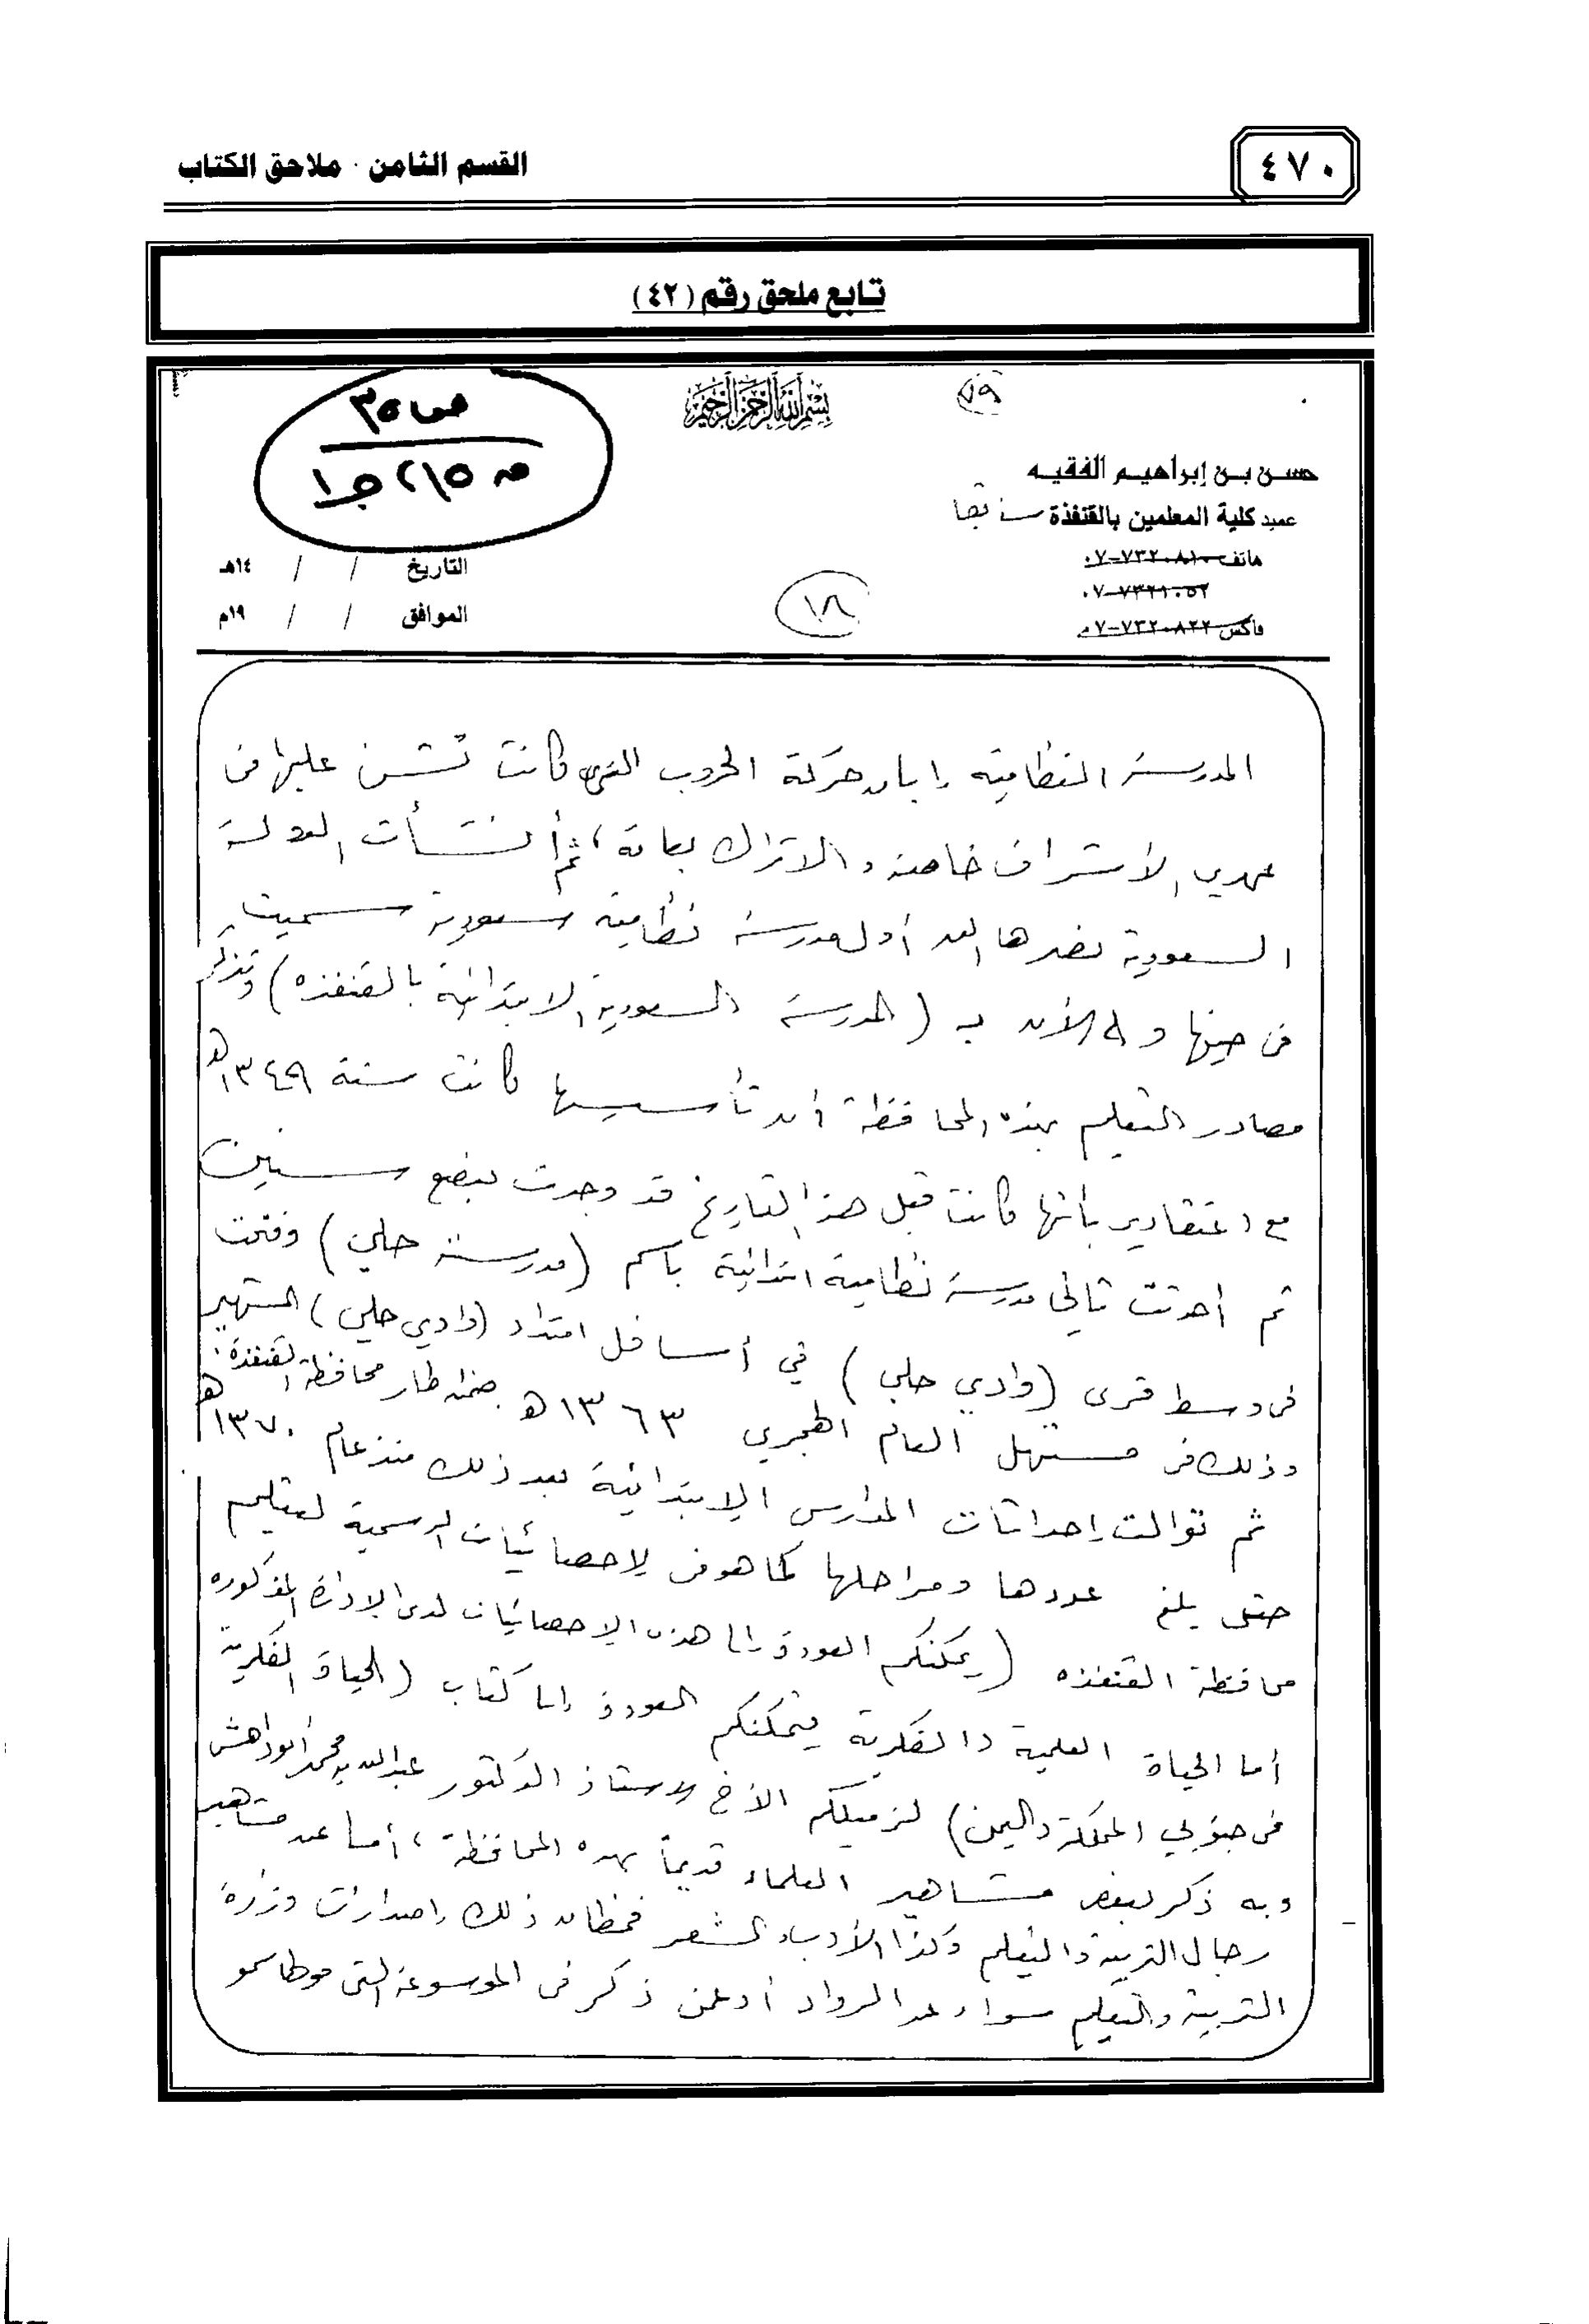 ٤٧٠
القسم الثامن . ملاحق الكتاب
تابع ملحق رقم (٤٢)
بسم الله الرحمن الرحيم
ص ٣٥
ص ٢١٥ ج١
حسن بن إبراهيم الفقيه
عميد كلية المعلمين بالقنفذة سابقا
هاتف ٧٣٢٠٨١٠-٠٧
٧٣٢١٠٥٢-٠٧
فاكس ٧٣٢٠٨٢٢-٠٧
التاريخ / / ١٤هـ
الموافق / / ١٩م
١٨
المدرسة النظامية إبان حركة الحروب التي كانت تشن عليها في
عهدي الأشراف خاصة والأتراك بعامة، ثم أنشأت الدولة
السعودية أول مدرسة نظامية سعودية سميت
في حينها وإلى الآن بـ (المدرسة السعودية الابتدائية بالقنفذه) وتذكر
مصادر التعليم بهذه المحافظة أن تأسيسها كانت سنة ١٣٤٩هـ
مع اعتقادي بأنها كانت قبل هذا التاريخ قد وجدت ببضع سنين
ثم أحدثت ثاني مدرسة نظامية ابتدائية باسم (مدرسة حلي) وفتحت
في وسط قرى (وادي حلي) في أسافل امتداد (وادي حلي) الشهير
ضمن إطار محافظة القنفذة
وذلك في مستهل العام الهجري ١٣٦٣هـ
ثم توالت إحداثات المدارس الابتدائية بعد ذلك منذ عام ١٣٧٠هـ
حتى بلغ عددها ومراحلها كما هو في الإحصائيات الرسمية لتعليم
محافظة القنفذه (يمكنكم العودة إلى هذه الإحصائيات لدى الإدارة المذكوره
أما الحياة العلمية والفكرية فيمكنكم العودة إلى كتاب (الحياة الفكرية
في جنوبي المملكة واليمن) لزميلكم الأخ الاستاذ الدكتور عبدالله بن محمد أبو داهش
وبه ذكر لبعض مشاهير العلماء قديماً بهذه المحافظة، أما عن مشاهير
رجال التربية والتعليم وكذا الأدب والشعر فمظان ذلك إصدارات وزارة
التربية والتعليم سواء عن الرواد أو عمن ذكر في الموسوعة التي